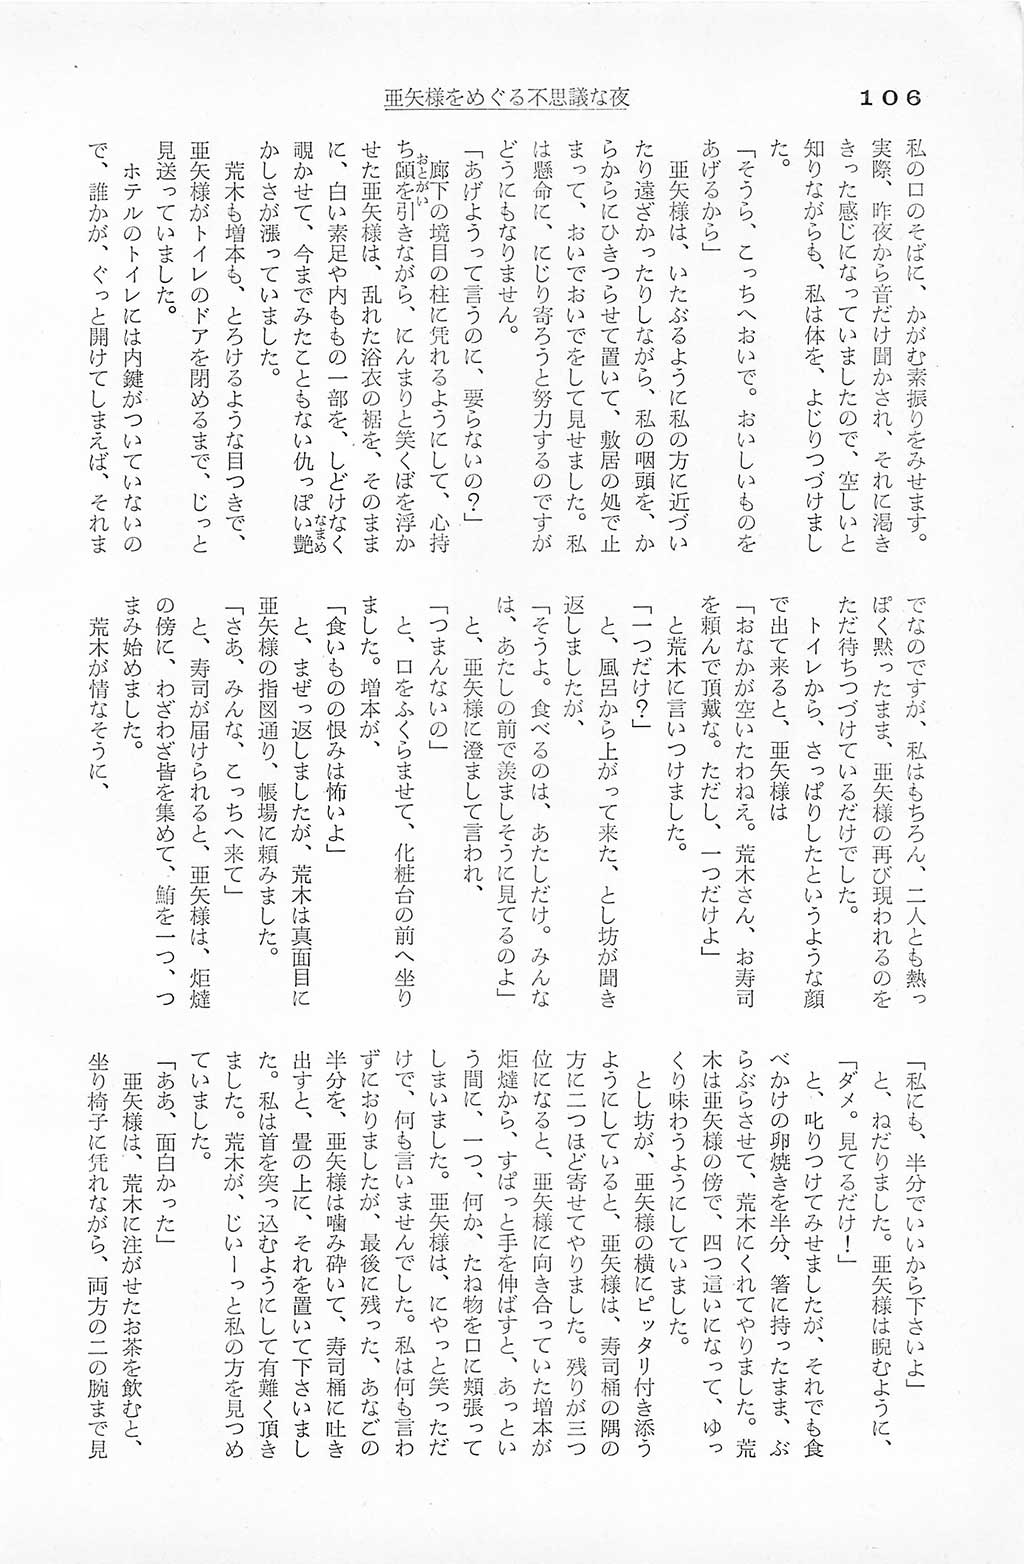 106
亜矢様をめぐる不思議な夜
私の口のそばに、かがむ素振りをみせます。
実際、昨夜から音だけ聞かされ、それに渇き
きった感じになっていましたので、空しいと
知りながらも、私は体を、よじりつづけまし
た。
「そうら、こっちへおいで。おいしいものを
あげるから」
亜矢様は、いたぶるように私の方に近づい
たり遠ざかったりしながら、私の咽頭を、か
らからにひきつらせて置いて、敷居の処で止
まって、おいでおいでをして見せました。私
は懸命に、にじり寄ろうと努力するのですが
どうにもなりません。
「あげようって言うのに、要らないの？」
廊下の境目の柱に凭れるようにして、心持
ち頤を引きながら、にんまりと笑くぼを浮か
おとがい
せた亜矢様は、乱れた浴衣の裾を、そのまま
に、白い素足や内ももの一部を、しどけなく
覗かせて、今までみたこともない仇っぽい艶
なまめ
かしさが漲っていました。
荒木も増本も、とろけるような目つきで、
亜矢様がトイレのドアを閉めるまで、じっと
見送っていました。
ホテルのトイレには内鍵がついていないの
で、誰かが、ぐっと開けてしまえば、それま
でなのですが、私はもちろん、二人とも熱っ
ぽく黙ったまま、亜矢様の再び現われるのを
ただ待ちつづけているだけでした。
トイレから、さっぱりしたというような顔
で出て来ると、亜矢様は
「おなかが空いたわねえ。荒木さん、お寿司
を頼んで頂戴な。ただし、一つだけよ」
と荒木に言いつけました。
「一つだけ？」
と、風呂から上がって来た、とし坊が聞き
返しましたが、
「そうよ。食べるのは、あたしだけ。みんな
は、あたしの前で羨ましそうに見てるのよ」
と、亜矢様に澄まして言われ、
「つまんないの」
と、口をふくらませて、化粧台の前へ坐り
ました。増本が、
「食いものの恨みは怖いよ」
と、まぜっ返しましたが、荒木は真面目に
亜矢様の指図通り、帳場に頼みました。
「さあ、みんな、こっちへ来て」
と、寿司が届けられると、亜矢様は、炬燵
の傍に、わざわざ皆を集めて、鮪を一つ、つ
まみ始めました。
荒木が情なそうに、
「私にも、半分でいいから下さいよ」
と、ねだりました。亜矢様は睨むように、
「ダメ。見てるだけ！」
と、叱りつけてみせましたが、それでも食
べかけの卵焼きを半分、箸に持ったまま、ぶ
らぶらさせて、荒木にくれてやりました。荒
木は亜矢様の傍で、四つ這いになって、ゆっ
くり味わうようにしていました。
とし坊が、亜矢様の横にピッタリ付き添う
ようにしていると、亜矢様は、寿司桶の隅の
方に二つほど寄せてやりました。残りが三つ
位になると、亜矢様に向き合っていた増本が
炬燵から、すぱっと手を伸ばすと、あっとい
う間に、一つ、何か、たね物を口に頬張って
しまいました。亜矢様は、にやっと笑っただ
けで、何も言いませんでした。私は何も言わ
ずにおりましたが、最後に残った、あなごの
半分を、亜矢様は噛み砕いて、寿司桶に吐き
出すと、畳の上に、それを置いて下さいまし
た。私は首を突っ込むようにして有難く頂き
ました。荒木が、じいーっと私の方を見つめ
ていました。
「ああ、面白かった」
亜矢様は、荒木に注がせたお茶を飲むと、
坐り椅子に凭れながら、両方の二の腕まで見